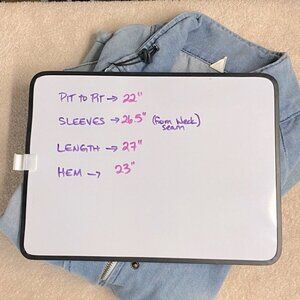 PIT to PIT → 22"
SLEEVES → 26.5" (from Neck seam)
LENGTH → 27"
HEM → 23"